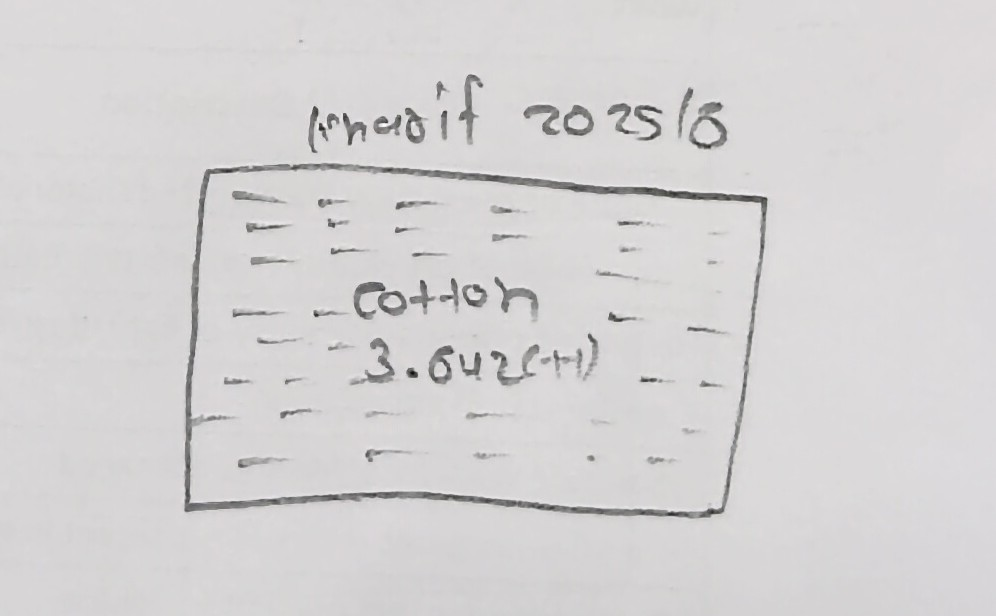 Kharif 2025/6
Cotton
3.642(H)